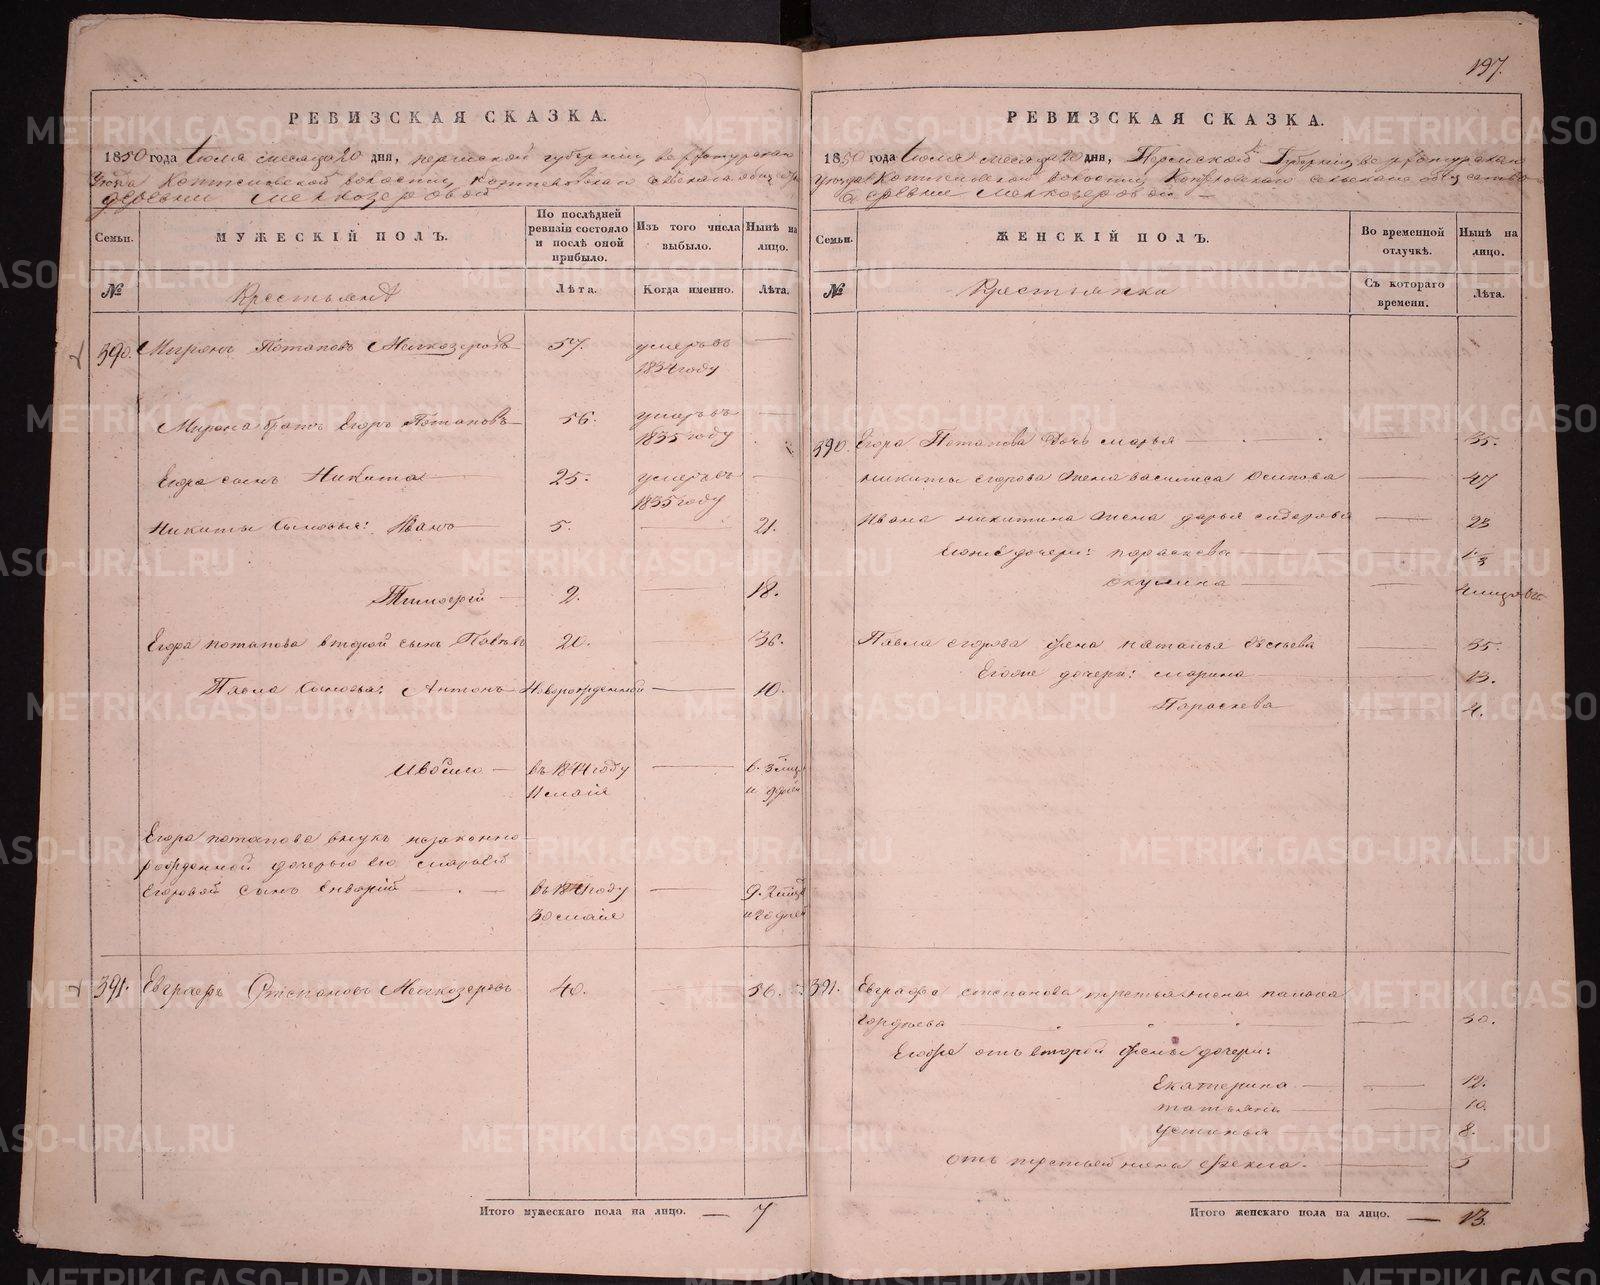 197.
РЕВИЗСКАЯ СКАЗКА.
1850 года Июля месяца 20 дня, пермской губернии, верхотурскаго
Уезда Коптеловской волости, Коптеловскаго селскаго общества
деревни Мелкозеровой
Семьи.
МУЖЕСКІЙ ПОЛЪ.
По послѣдней ревизіи состояло и послѣ оной прибыло.
Изъ того числа выбыло.
Нынѣ на лицо.
№
Крестьянъ
Лѣта.
Когда именно.
Лѣта.
390. Миронъ Потаповъ Мелкозеровъ 57. умеръ въ —
1834 году
Мирона братъ Егоръ Потаповъ 56. умеръ въ —
1835 году
Егора сынъ Никита 25. умеръ въ —
1835 году
Никиты сыновья: Иванъ 5. — 21.
Тимофей 2. — 18.
Егора потапова второй сынъ Павелъ 20. — 36.
Павла сыновья: Антонъ Новорожденной — 10.
въ 1844 году — 6. 3 мца
и дней
Егора потапова внукъ незаконно
рожденной дочерью его марьей
Егоровой сынъ — въ 1841 году — 9.
мая и 20 дней
391. Евграфъ Степановъ Мелкозеровъ 40. — 56.
Итого мужескаго пола на лицо. — 7
РЕВИЗСКАЯ СКАЗКА.
1850 года Июля месяца 20 дня, Пермской Губернии, верхотурскаго
Уезда Коптеловской волости, Коптеловскаго селскаго общества
деревни Мелкозеровой —
Семьи.
ЖЕНСКІЙ ПОЛЪ.
Во временной отлучкѣ.
Нынѣ на лицо.
№
Крестьянка
Съ котораго времени.
Лѣта.
390. Егора Потапова дочь марья — 35.
Никиты егорова жена василиса Осипова — 47
Ивана никитина жена дарья сидорова — 23
Егоже дочери: параскева —
окулина —
Павла егорова жена наталья — 35.
Егоже дочери: марина — 13.
Параскева — 4.
391. Евграфа степанова третья жена
Гордеева — 30.
Егоже отъ второй жены дочери:
Екатерина — 12.
татьяна — 10.
устинья — 8.
отъ третьей жены Фекла. — 3
Итого женскаго пола на лицо. — 13.
METRIKI.GASO-URAL.RU